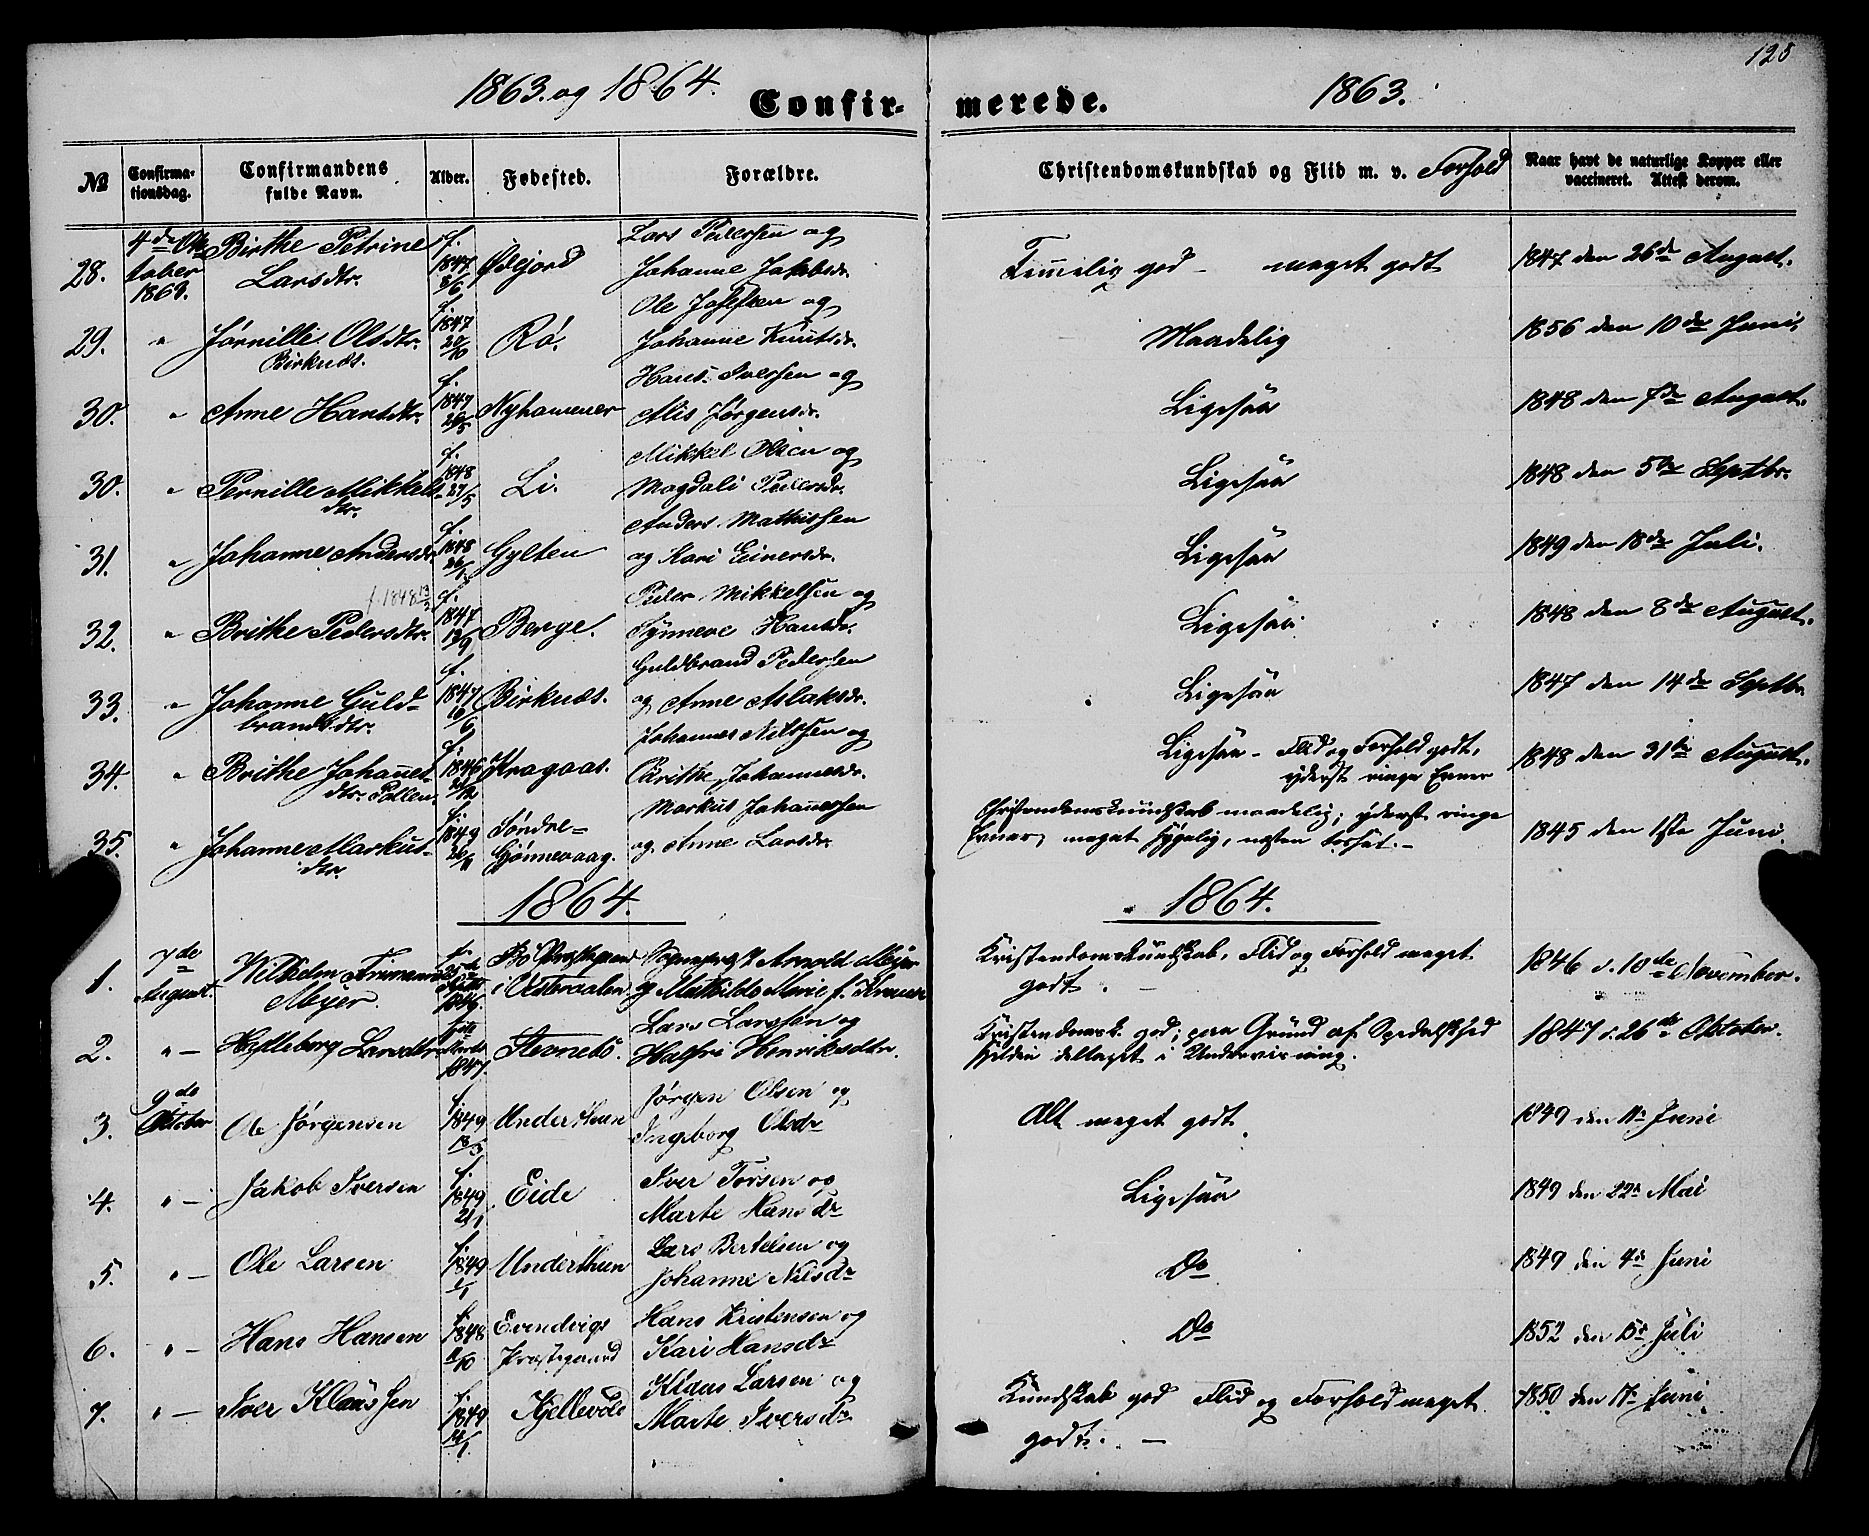 128
1863. og 1864.
Confir- merede.
1863.
No
Confirma-
tionsdag.
Confirmandens
fulde Navn.
Alder.
Fødested.
Forældre.
Christendomskundskab og Flid m. v. Forhold
Naar havt de naturlige Kopper eller
vaccineret. Attest derom.
28. 4de Ok-
tober
1863. Birthe Petrine
Larsdtr. f. 1847 Ødejord Lars Pedersen og
Johanne Jakobsdr. god - meget godt 1847 den 26de August.
29. " Jørnille Olsdtr.
Birknæs. f. 1847 Rø. Ole Josefsen og
Johanne Knutsdr. Maadelig 1856 den 10de Juni.
30. " Anne Hansdtr. f. 1847 Nyhammer Hans Iversen og
Alis Jørgensdr. Ligesaa 1848 den 7de August.
30. " Pernille Mikkels-
dtr. f. 1848 27/5 Li. Mikkel Olsen og
Magdali Pedersdr. Ligesaa 1848 den 5te Septbr.
31. " Johanne Andersdtr. f. 1848 26/1 Gylten Anders Mathissen
og Kari Einersdr. Ligesaa 1849 den 18de Juli.
f. 1848
32. " Brithe Pedersdtr. f. 1847 12/9 Berge. Peder Mikkelsen og
Synneve Hansdr. Ligesaa 1848 den 8de August.
33. " Johanne Guld-
brandsdtr. f. 1847 10/6 Birknæs. Guldbrand Pedersen
og Anne Aslaksdr. Ligesaa 1847 den 14de Septbr.
34. " Brithe Johannes-
dtr. Pollen. f. 1846 Kragaas. Johannes Nilssen og
Brithe Johannesdr. Ligesaa - Flid og Forhold godt,
yderst ringe Evner 1848 den 31te August.
35. " Johanne Markus-
dtr. f. 1849 Søndre-
Gjønnevaag. Markus Johannessen
og Anne Larsdr. Christendomskundskab maadelig; yderst ringe
Evner, meget sygelig, næsten 1845 den 1ste Juni.
1864.
1864.
1. 7de
August. Wilhelm
Mejer. 1846. Bø Præstegaard
i Vesteraalen Arnold Mejer
og Mathilde Marie f. Kristendomskundskab, Flid og Forhold meget
godt. - 1846 d. 10de November.
2. " - Hylleborg Larsdtr. 1847. Steenebø. Lars Larssøn og
Halfri Henriksdtr. Kristendomsk. god; paa Grund af Spedalskhed
sjelden deltaget i Undervisning. 1847 d. 26de Oktober.
3. 9de
Oktober Ole Jørgensen f. 1849 18/3 Undertheen Jørgen Olsen og
Ingeborg Olsdr Alt meget godt. 1849 den 11te Juni
4. " - Jakob Iversen f. 1849 21/1 Eide Iver Torsen og
Marte Hansdr Ligesaa 1849 den 22de Mai
5. " - Ole Larsen f. 1849 1/1 Undertheen Lars Bertelsen og
Johanne Nilsdr Do 1849 den 4de Juni
6. " - Hans Hansen f. 1848 Evendvigs
Præstegaard Hans Kristensen og
Kari Hansdr Do 1852 den 15de Juli
7. " - Iver Klaussen f. 1849 14/1 Kjellevold Klaus Larsen og
Marte Iversdr Kundskab god Flid og Forhold meget
godt. - 1850 den 17de Juni